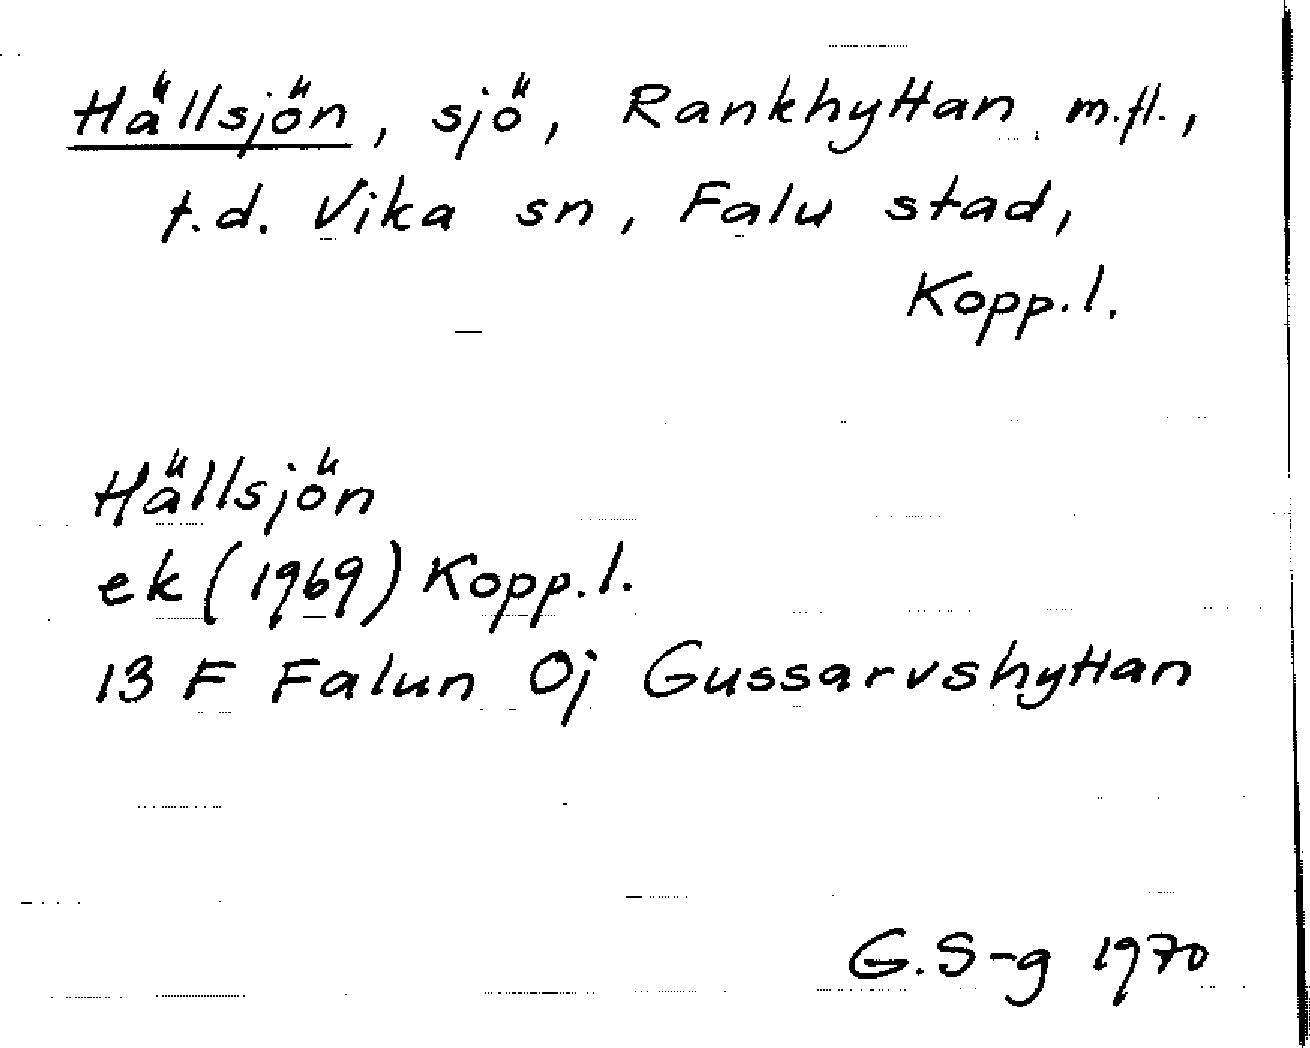 Hällsjön, sjö, Rankhyttan m.fl.,
t.d. Vika sn, Falu stad,
Kopp.l.
Hällsjön
ek (1969) Kopp.l.
13 F Falun 0j Gussarvshyttan
G.S-g 1970